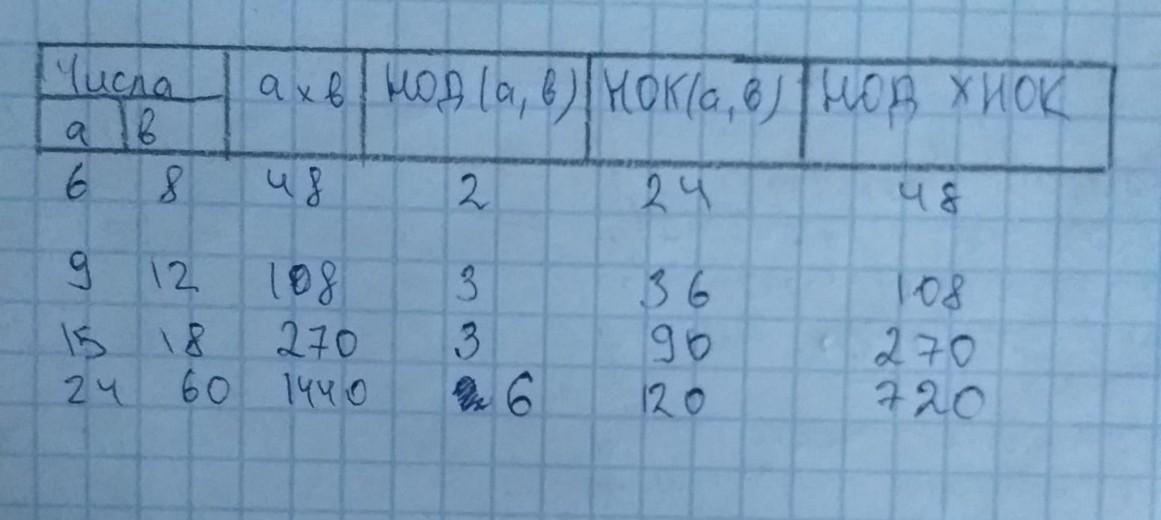 Числа а х в НОД (а, в) НОК(а, в) НОД х НОК
а в
6 8 48 2 24 48
9 12 108 3 36 108
15 18 270 3 90 270
24 60 1440 6 120 720